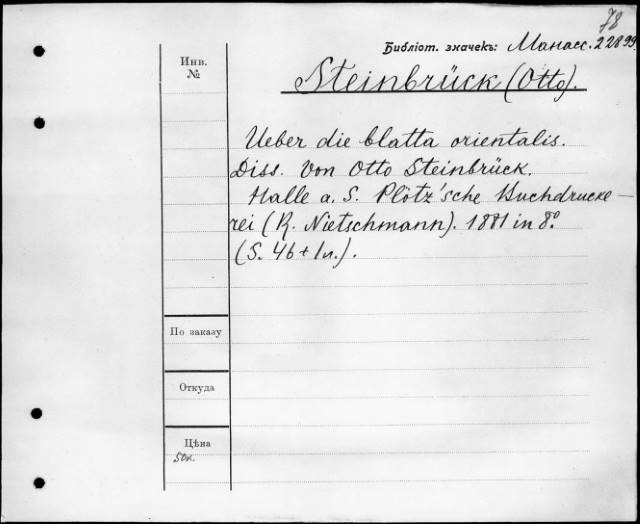 78
Библіот. значекъ: Манасс. 22899
Инв.
№
Steinbrück (Otto).
Ueber die blatta orientalis.
Diss. von Otto Steinbrück.
Halle a. S. Plötz'sche Buchdrucke-
rei (R. Nietschmann). 1881 in 8º
(S. 46 + 1 л.).
По заказу
Откуда
Цѣна
50к.